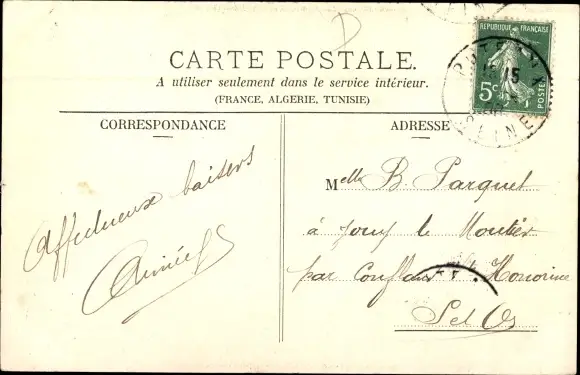 D
CARTE POSTALE.
A utiliser seulement dans le service intérieur.
(FRANCE, ALGERIE, TUNISIE)
CORRESPONDANCE
ADRESSE
REPUBLIQUE FRANÇAISE
5c
POSTES
PUTEAUX
15
SEINE
Affectueux baisers
Aimée
Melle B. Parquet
à Jouy le Moutier
par Conflans Ste Honorine
S et O